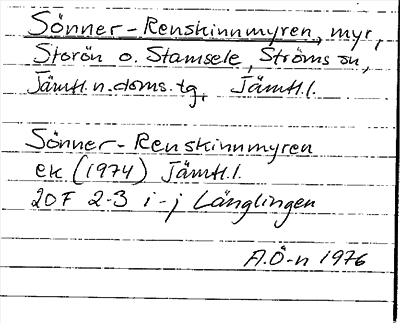 Sönner-Renskinnmyren, myr,
Storön o. Stamsele, Ströms sn,
Jämtl.n.doms.tg, Jämtl.l.
Sönner-Renskinnmyren
ek (1974) Jämtl.l.
20F 2-3 i-j Länglingen
A.Ö-n 1976